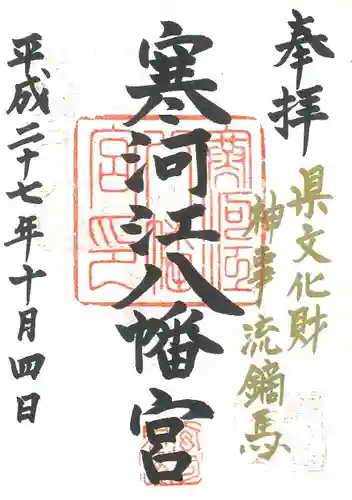 奉拝
県文化財
神事流鏑馬
寒河江八幡宮
平成二十七年十月四日